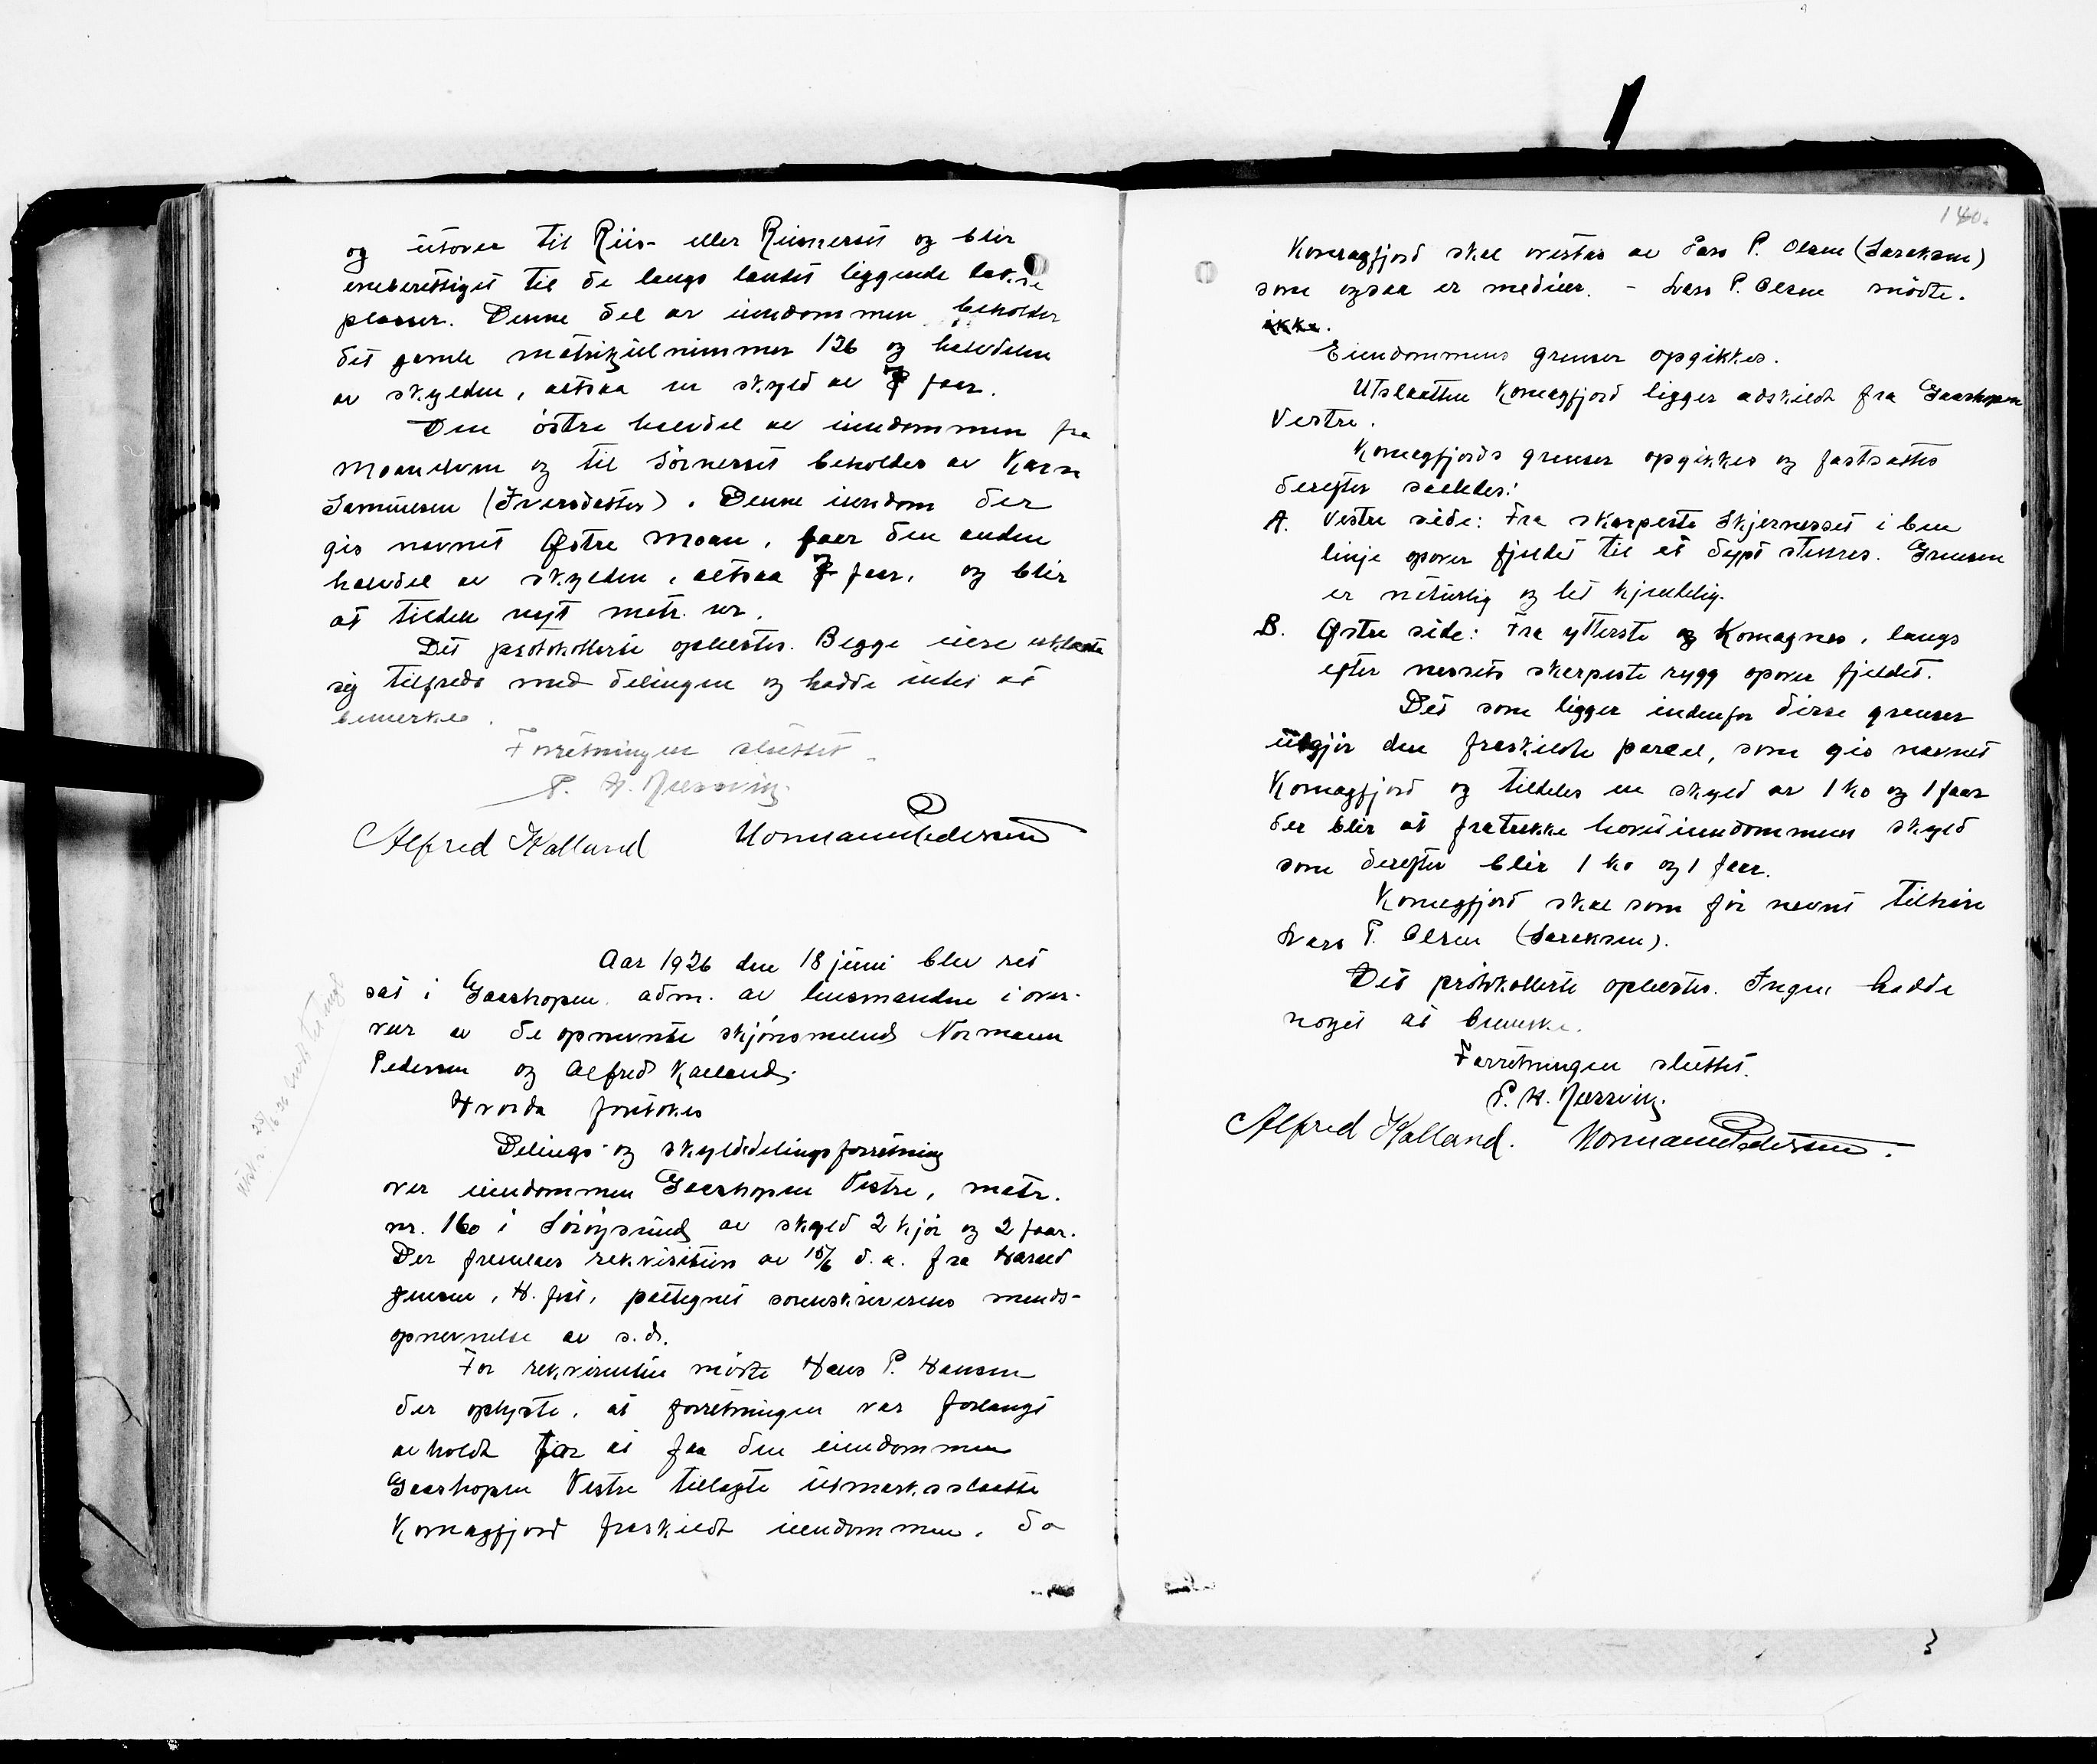 og utover til Riis- eller Riisnesset og blir
eneberettiget til de langs landet liggende lakse
plasser. Denne del av eiendommen beholder
det gamle matrikulnummer 126 og halvdelen
av skylden, altsaa en skyld av 7 faar.
Den östre halvdel av eiendommen fra
Moanelven og til Sörnesset beholdes av Karen
Samuelsen (Iversdatter). Denne eiendom der
gis navnet Østre Moan, faar den anden
halvdel av skylden, altsaa 7 faar, og blir
at tildele nyt matr. nr.
Det protokollerte oplæstes. Begge eiere erklærte
sig tilfreds med delingen og hadde intet at
bemerke.
Forretningen sluttet.
P. H.
Alfred Kalland Normann Pedersen
Aar 1926 den 18 juni blev ret
sat i Gaashopen adm. av lensmanden i over-
vær av de opnevnte skjönsmænd Normann
Pedersen og Alfred Kalland.
Hvorda foretokes
Delings- og skylddelingsforretning
over eiendommen Gaashopen Vestre, matr.
nr. 160 i Söröysund av skyld 2 kjör og 2 faar.
Der fremlaes rekvisition av 15/6 d.a. fra Harald
Jensen, H.fest, paategnet sorenskriverens mends-
opnevnelse av s.d.
For rekvirenten mötte Hans P. Hansen
der oplyste, at forretningen var forlangt
avholdt for at faa den eiendommen
Gaashopen Vestre tillagte utmarksslaatte
Komagfjord fraskildt eiendommen, da
160.
Komagfjord skal overtas av Lars P. Olsen (Saraksen)
som ogsaa er medeier. - Lars P. Olsen mödte.
ikke.
Eiendommens grenser opgikkes.
Utslaatten Komagfjord ligger adskildt fra Gaashopen
Vestre.
Komagfjords grenser opgikkes og fastsattes
derefter saaledes:
A. Vestre side: Fra skarpeste Skjernesset i ben
linje opover fjeldet til et dypt stenras. Grensen
er naturlig og let kjendelig.
B. Østre side: Fra ytterste og Komagnes, langs
efter nessets skarpeste rygg opover fjeldet.
Det som ligger indenfor disse grenser
utgjör den fraskildte parcel, som gis navnet
Komagfjord og tildeles en skyld av 1 ko og 1 faar
der blir at fratrekke hoveiendommens skyld
som derefter blir 1 ko og 1 faar.
Komagfjord skal somför nevnt tilhöre
Lars P. Olsen (Saraksen).
Det protokollerte oplæstes. Ingen hadde
noget at bemerke.
Forretningen sluttet.
P. H.
Alfred Kalland. Normann Pedersen.